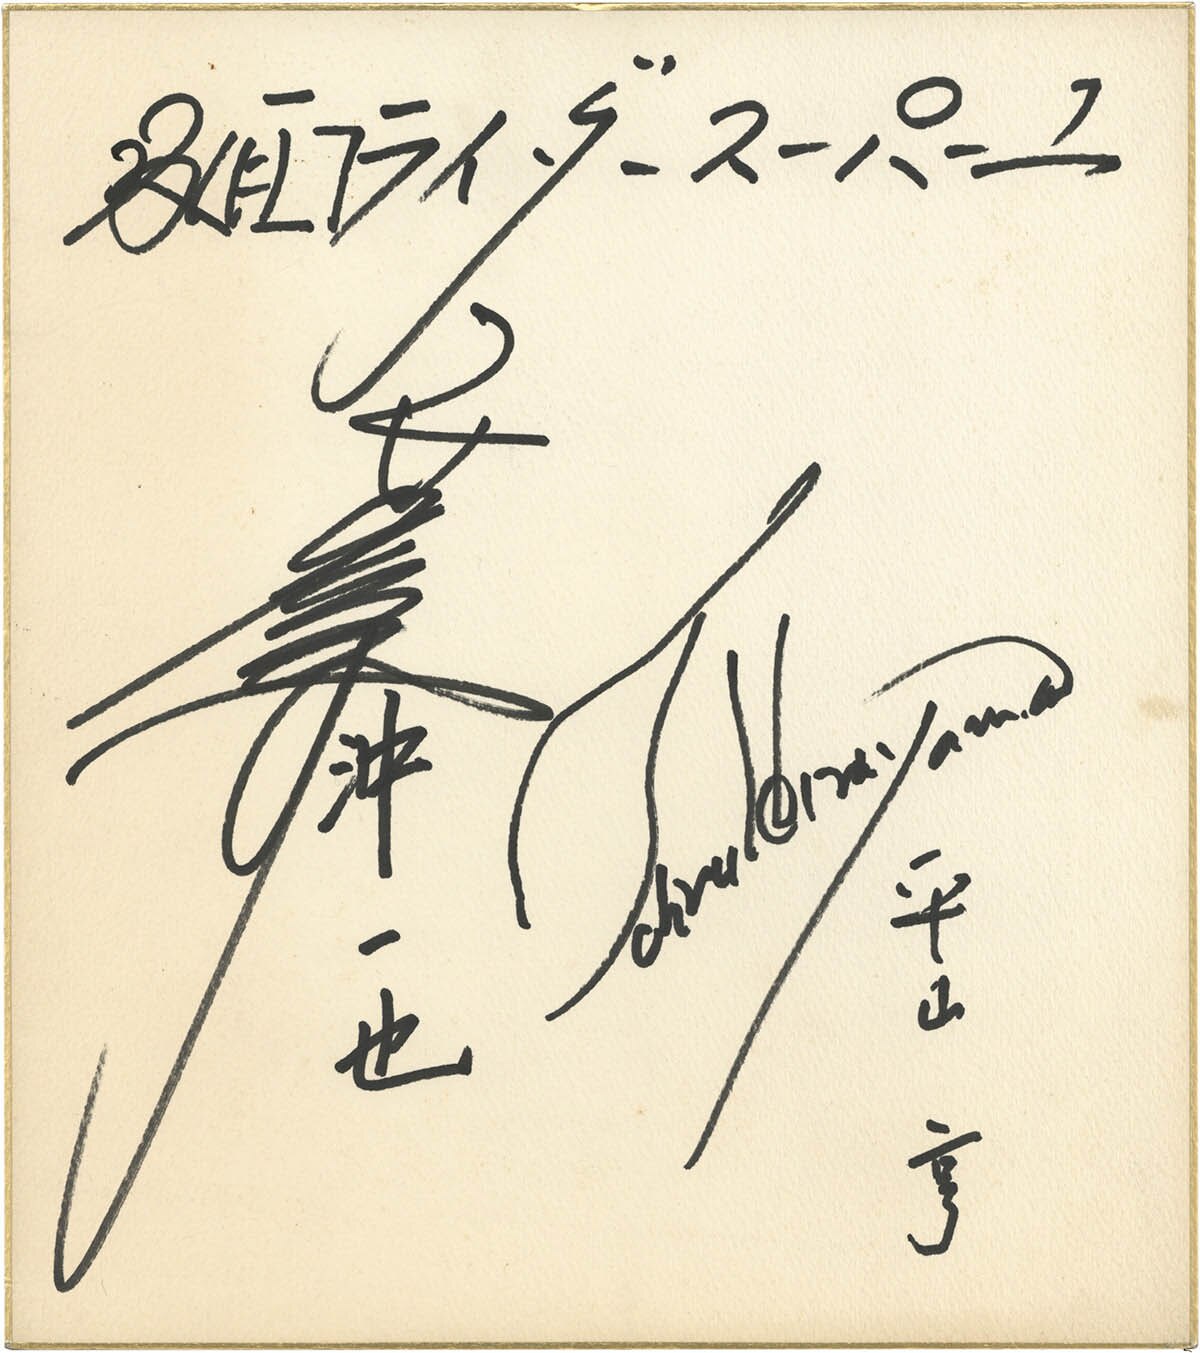 仮面ライダースーパー1
沖一也
Tohru Hirayama
平山亨